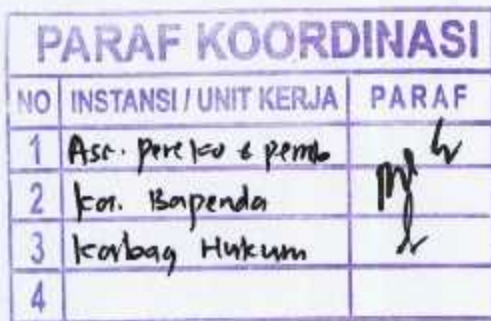 PARAF KOORDINASI
NO INSTANSI / UNIT KERJA PARAF
1 Ass. Pereko & pemb
2 Ka. Bapenda
3 Kabag Hukum
4